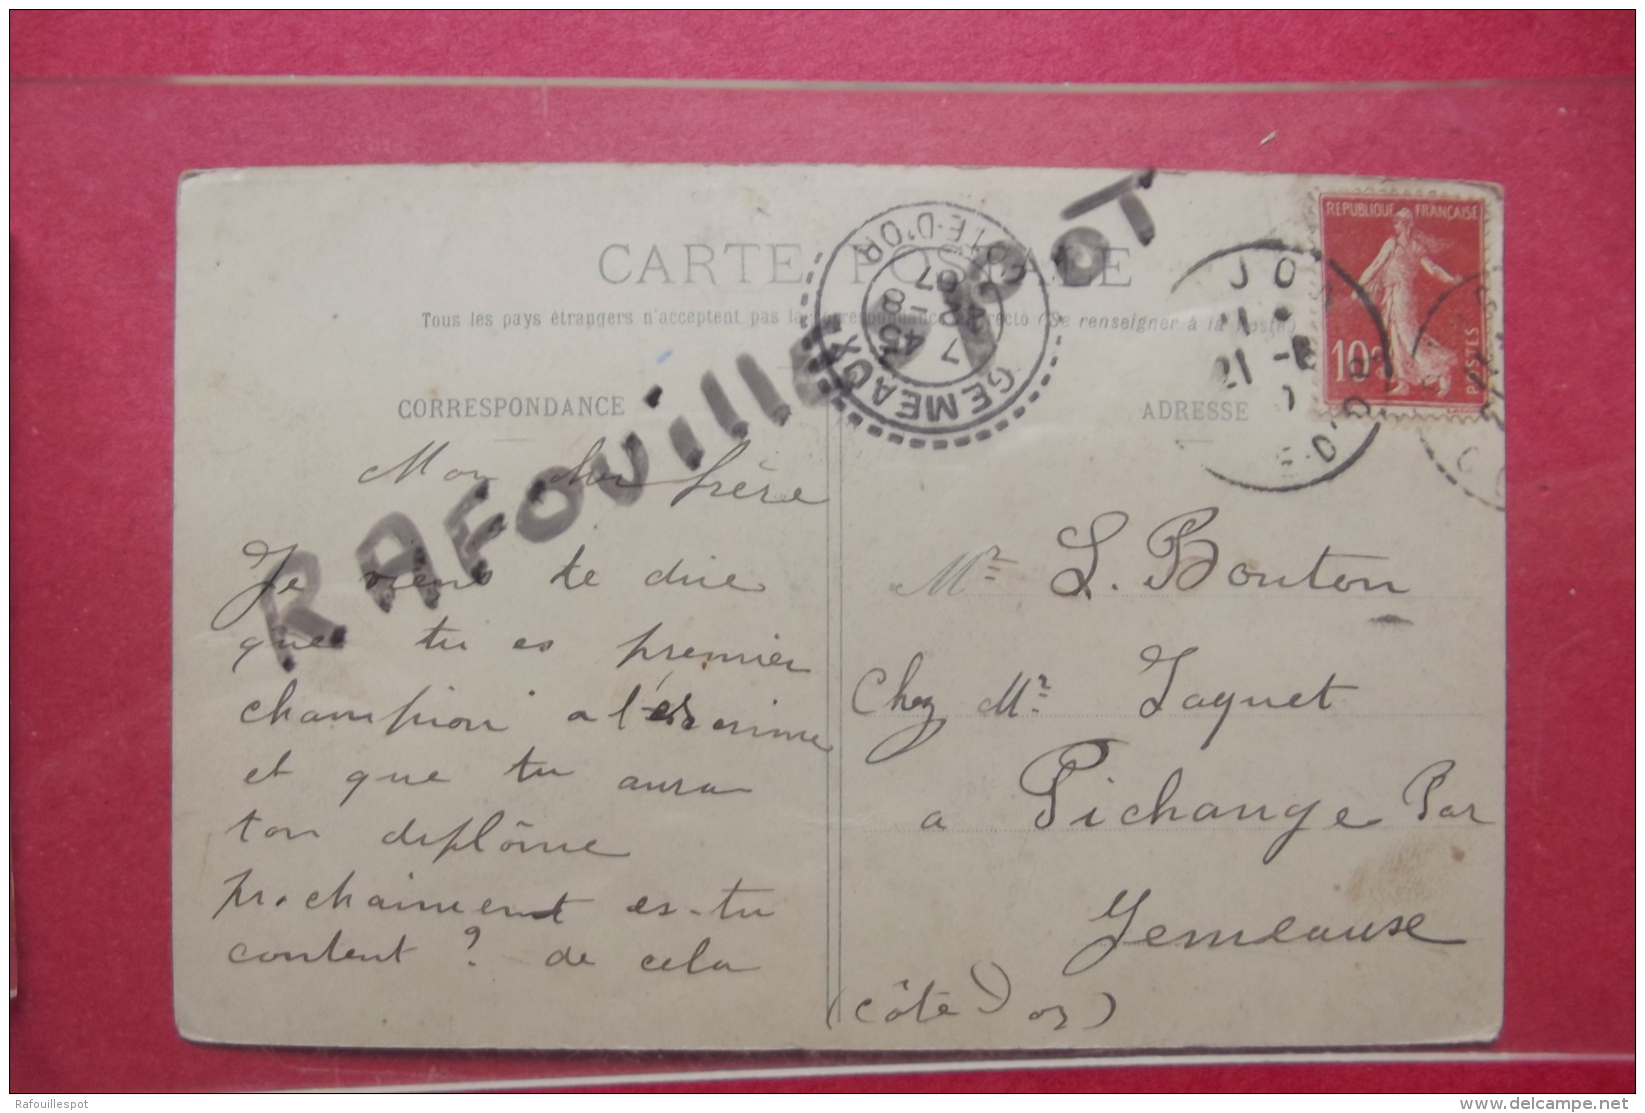 CARTE POSTALE
Tous les pays étrangers n'acceptent pas la correspondance au recto (Se renseigner à la Poste)
CORRESPONDANCE
ADRESSE
RAFOUILLESPOT
GEMEAUX
CÔTE-D'OR
7
8 45
07
REPUBLIQUE FRANÇAISE
10c
POSTES
Mon cher frère
Je viens te dire
que tu es premier
champion a l'escrime
et que tu aura
ton diplôme
prochainement es-tu
content ? de cela
Mr L. Bouton
Chez Mr Jaquet
a Pichange Par
Gemeause
(côte D or)
Rafouillespot
www.delcampe.net